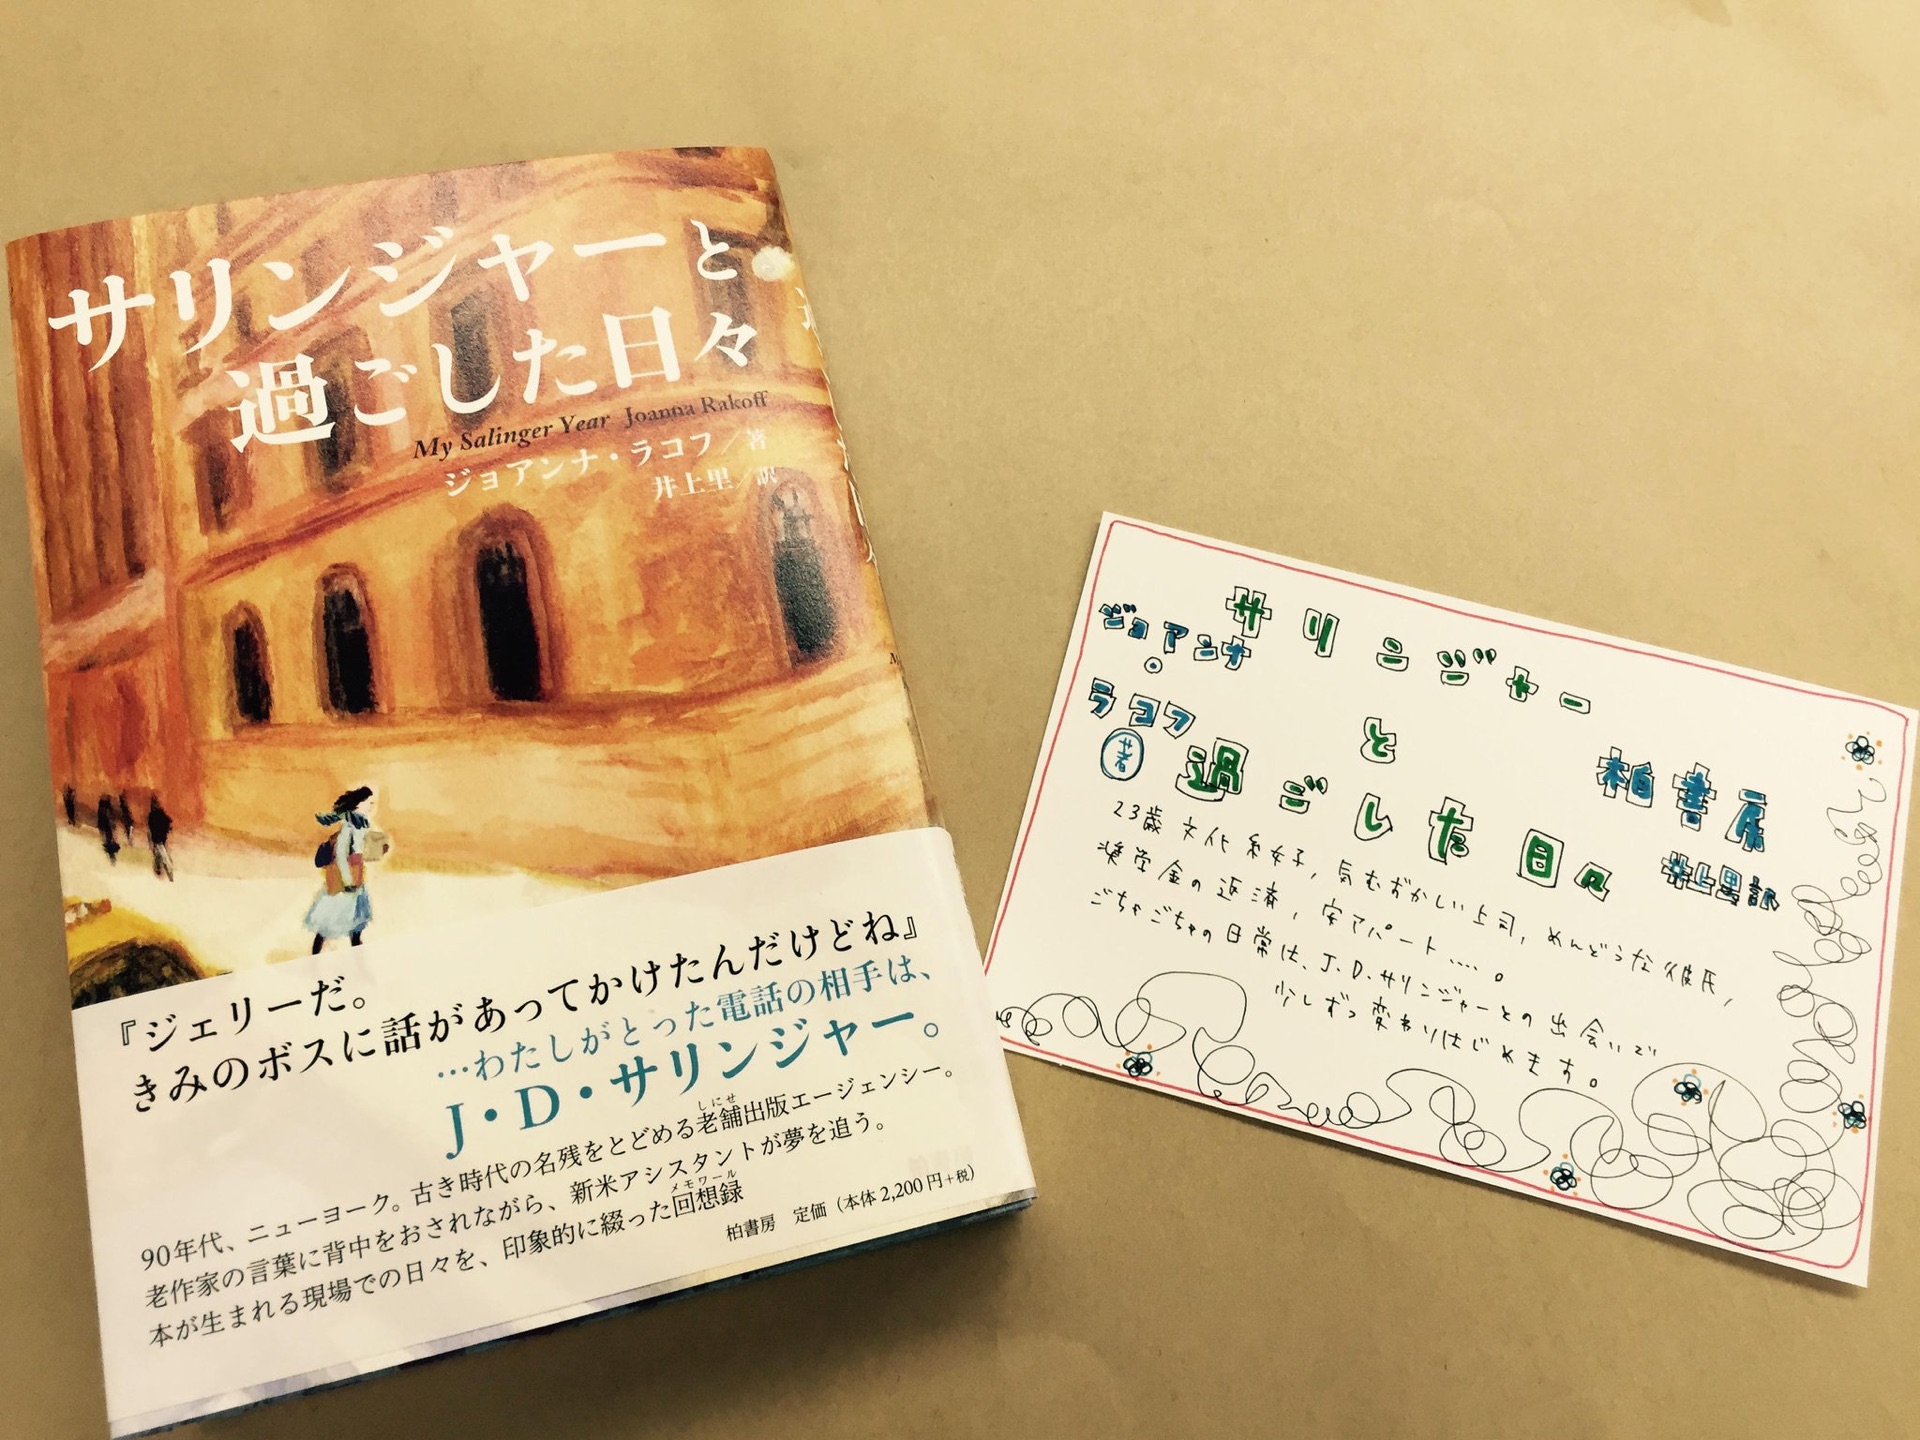 サリンジャーと
過ごした日々
My Salinger Year Joanna Rakoff
ジョアンナ・ラコフ/著
井上里/訳
『ジェリーだ。
きみのボスに話があってかけたんだけどね』
…わたしがとった電話の相手は、
J・D・サリンジャー。
90年代、ニューヨーク。古き時代の名残をとどめる老舗出版エージェンシー。
しにせ
老作家の言葉に背中をおされながら、新米アシスタントが夢を追う。
本が生まれる現場での日々を、印象的に綴った回想録
メモワール
柏書房 定価(本体2,200円+税)
サリンジャー
と
過ごした日々
ジョアンナ
・
ラコフ
著
柏書房
井上里訳
23歳文化系女子,気むずかしい上司,めんどうな彼氏,
奨学金の返済,安アパート....。
ごちゃごちゃの日常は、J.D.サリンジャーとの出会いで
少しずつ変わりはじめます。